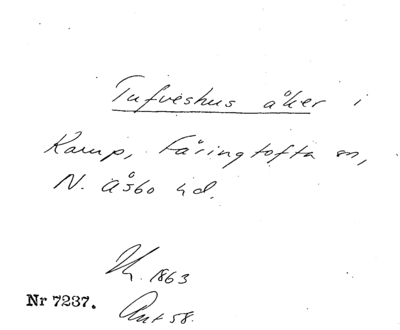 Tufveshus åker i
Karup, Fåringtofta sn,
N. Åsbo hd.
1863
Nr 7237. Ant 58.